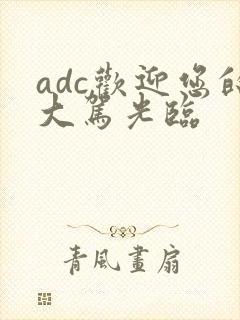 adc歡迎您的
大駕光臨
青風畫扇